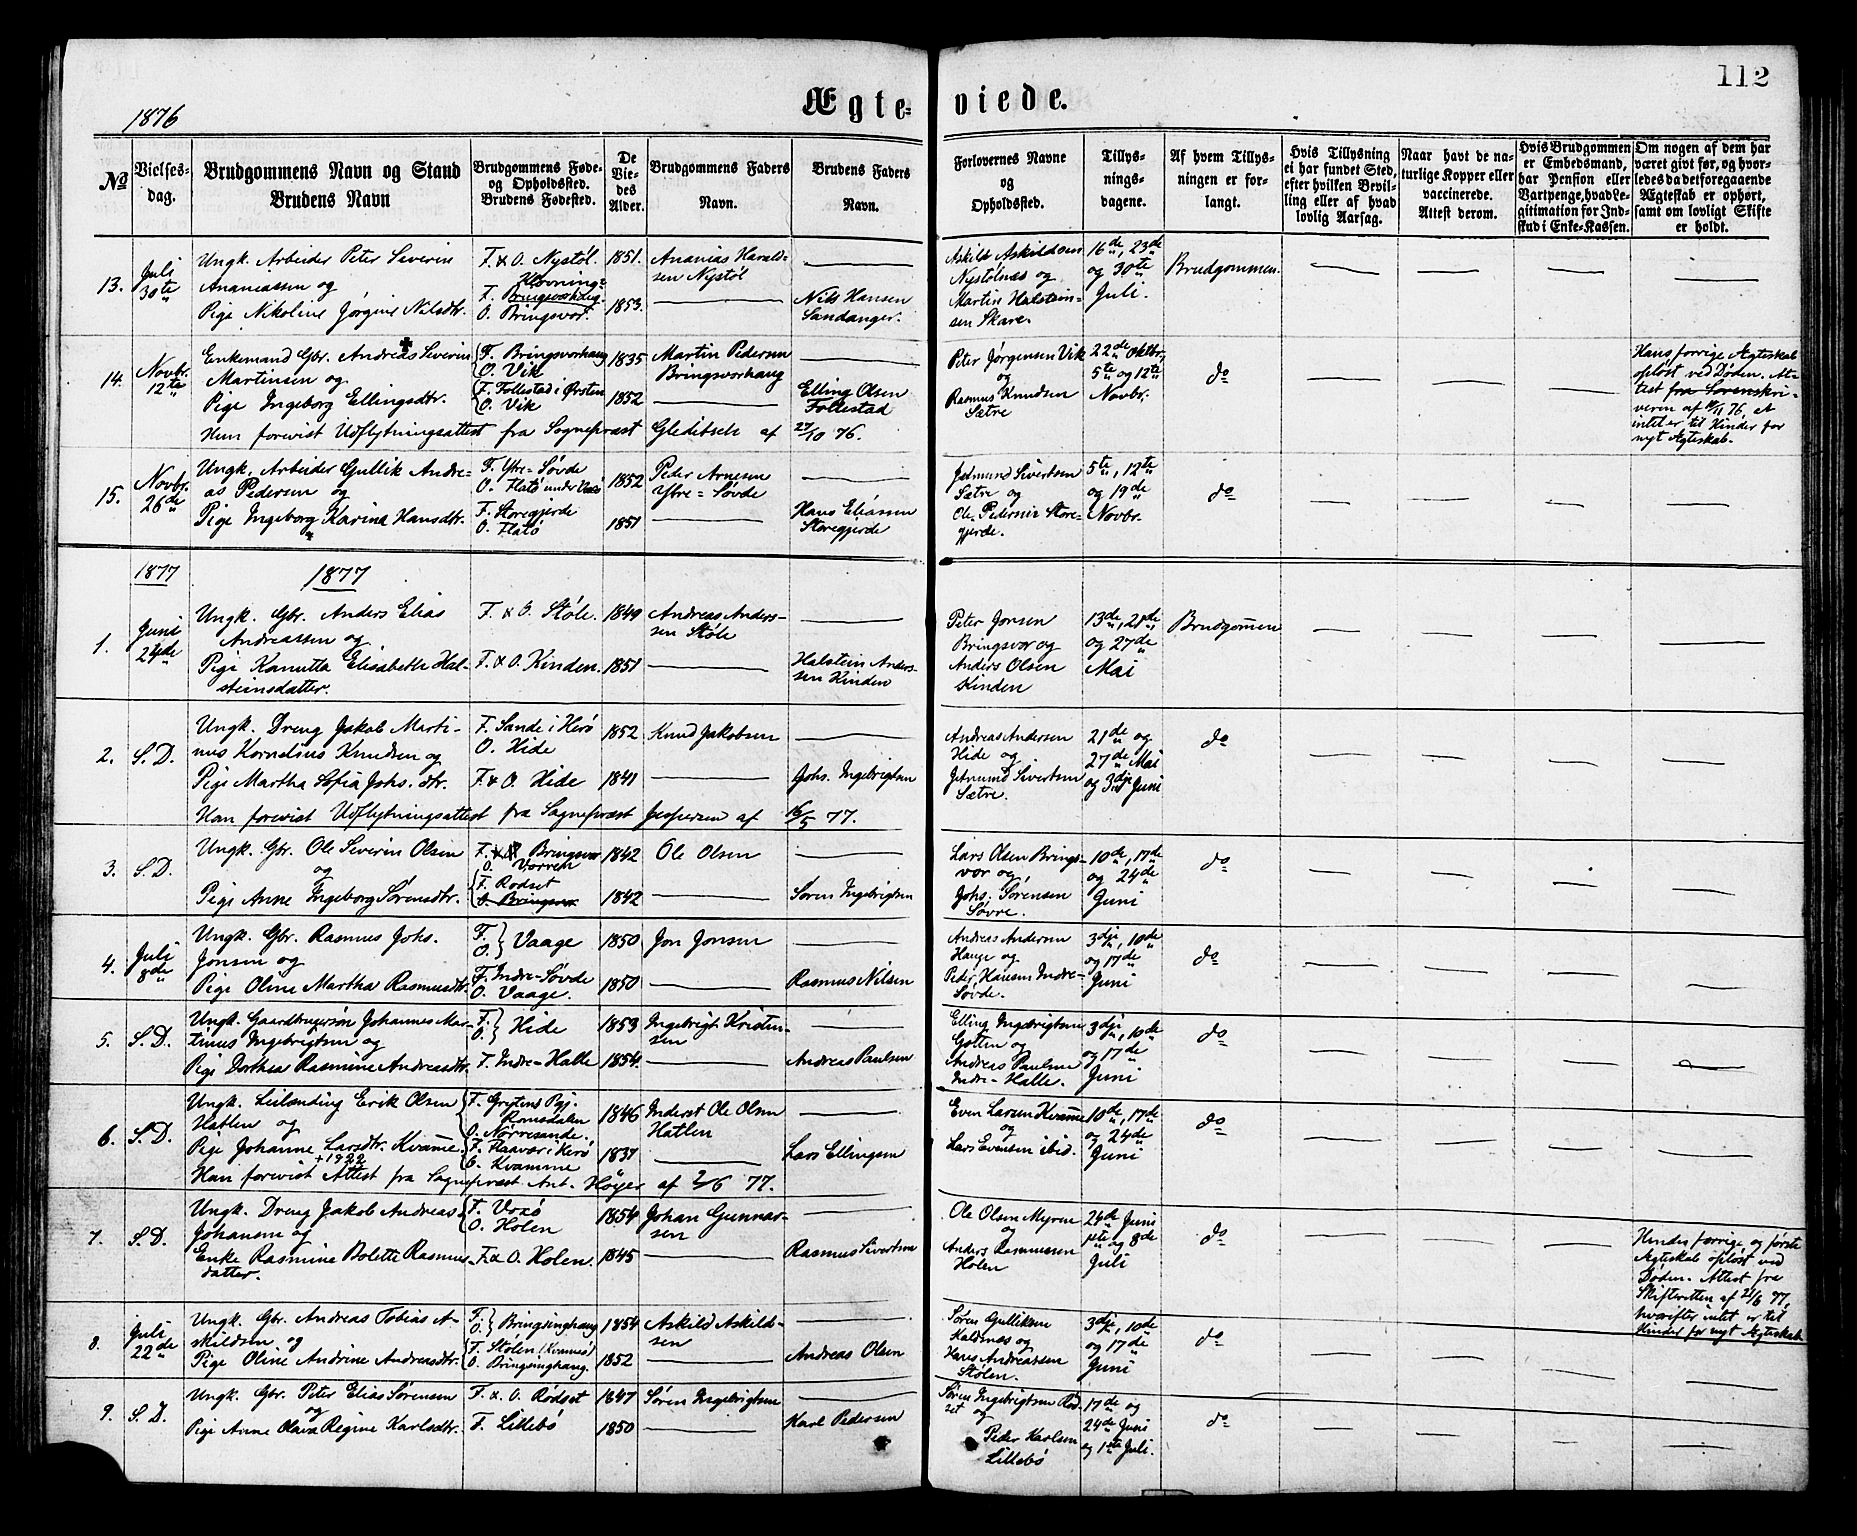 112
1876
Ægte-
viede.
No
Vielses-
dag.
Brudgommens Navn og Stand
Brudens Navn
Brudgommens Føde-
og Opholdssted.
Brudens Fødested.
De
Vie-
des
Alder.
Brudgommens Faders
Navn.
Brudens Faders
Navn.
Forlovernes Navne
og
Opholdssted.
Tillys-
nings-
dagene.
Af hvem Tillys-
ningen er for-
langt.
Hvis Tillysning
ei har fundet Sted,
efter hvilken Bevil-
ling eller af hvad
lovlig Aarsag.
Naar havt de na-
turlige Kopper eller
vaccinerede.
Attest derom.
Hvis Brudgommen
er Embedsmand,
har Pension eller
Vartpenge, hvad Le-
gitimation for Ind-
skud i Enke-Kassen.
Om nogen af dem har
været givt før, og hvor-
ledes da det foregaaende
Ægteskab er ophørt,
samt om lovligt Skifte
er holdt.
13.
Juli
30te
Ungk. Arbeider Peter Severin
Ananiassen og
Pige Nikoline Jørgine Nilsdtr.
F. & O. Nystøl.
F.
O. Bringsvor.
1851.
1853.
Ananias Harald-
sen Nystøl
Nils Hansen
Sandanger.
Askild Askildsen
Nystølnæs og
Martin Halstein-
sen Skare.
16de, 23de
og 30te
Juli.
Brudgommen.
14.
Novbr.
12te
Enkemand Gbr. Andreas Severin
Martinsen og
Pige Ingeborg Ellingsdtr.
F. Bringsvorhaug
O. Vik
F. Follestad i Ørsten
O. Vik
1835
1852
Martin Pedersen
Bringsvorhaug
Elling Olsen
Follestad
Hun forevist Udflytningsattest fra Sogneprest Gleditsch af 27/10 76.
Peter Jørgensen Vik
og
Rasmus Knudsen
Sætre
22de Oktbr,
5te og 12te
Novbr.
do
Hans forrige Ægteskab
opløst ved Døden. At-
test fra Sorenskri-
veren af 11/11 76, at
intet er til Hinder for
nyt Ægteskab.
15.
Novbr.
26de
Ungk. Arbeider Gullik Andre-
as Pedersen og
Pige Ingeborg Karina Hansdtr.
F. Ytre-Søvde
O. Flatø under Voxø
F. Storegjerde
O. Flatø
1852
1851
Peder Arnesen
Ytre-Søvde
Hans Eliassen
Storegjerde
Jetmund Sivertsen
Sætre og
Ole Pedersen Store-
gjerde.
5te, 12te
og 19de
Novbr.
do
1877
1877
1.
Juni
24de
Ungk. Gbr. Anders Elias
Andreassen og
Pige Kanutta Elisabeth Hal-
steinsdatter.
F. & O. Støle.
F. & O. Kinden.
1849
1851
Andreas Anders-
sen Støle
Halstein Anders-
sen Kinden
Peter Jonsen
Bringsvor og
Anders Olsen
Kinden
13de, 21de,
og 27de
Mai
Brudgommen
2.
S. D.
Ungk. Dreng Jakob Marti-
nus Kornelius Knudsen og
Pige Martha Sofia Johs. dtr.
F. Sande i Herø
O. Hide
F. & O. Hide
1852
1841
Knud Jakobsen
Johs. Ingebrigtsen
Han forevist Udflytningsattest fra Sogneprest Jespersen af 16/5 77.
Andreas Andersen
Hide og
Jetmund Sivertsen
Sætre.
21de og
27de Mai
og 3dje Juni
do
3.
S. D.
Ungk. Gbr. Ole Severin Olsen
og
Pige Anne Ingeborg Sørensdtr.
F. Bringsvor
O. Vorren
F. Rødset
O. Bringsvor
1842
1842
Ole Olsen
Søren Ingebrigtsen
Lars Olsen Brings-
vor og
Johs. Sørensen
Søvre.
10de, 17de
og 24de
Juni
do
4.
Juli
8de
Ungk. Gbr. Rasmus Johs.
Jonsen og
Pige Oline Martha Rasmusdtr.
F.
O. } Vaage
F. Indre-Søvde
O. Vaage.
1850
1850
Jon Jonsen
Rasmus Nilsen
Andreas Andersen
Hauge og
Peder Hansen Indre-
Søvde.
3dje, 10de
og 17de
Juni
do
5.
S. D.
Ungk. Gaardbrugersøn Johannes Mar-
tinus Ingebrigtsen og
Pige Dorthea Rasmine Andreasdtr.
F.
O. } Hide
F. Indre-Halle
1853
1854.
Ingebrigt Kristen-
sen
Andreas Paulsen
Elling Ingebrigtsen
Gotten og
Andreas Paulsen
Indre-Halle.
3dje, 10de
og 17de
Juni
do
6.
S. D.
Ungk. Leilænding Erik Olsen
Hatlen og
Pige Johanne Larsdtr. Kvamme.
+1922
F. Grytens Pgj.
Romsdalen
O. Nørvesande.
F. Flaavær i Herø
O. Kvamme
1846
1837
Inderst Ole Olsen
Hatlen
Lars Ellingsen
Han forevist Attest fra Sogneprest Ant. Høyer af 2/6 77.
Even Larsen Kvamme
og
Lars Evensen ibid.
10de, 17de
og 24de
Juni
do
7.
S. D.
Ungk. Dreng Jakob Andreas
Johansen og
Enke Rasmine Bolette Rasmus-
datter.
F. Voxø
O. Holen
F. & O. Holen.
1854
1845
Johan Gunnar-
sen
Rasmus Sivertsen
Ole Olsen Myren
og
Anders Rasmussen
Holen
24de Juni
1ste og 8de
Juli
do
Hendes forrige og første
Ægteskab opløst ved
Døden. Attest fra
Skifteretten af 21/6 77,
hvorefter intet er til
Hinder for nyt Ægteskab.
8.
Juli
22de
Ungk. Gbr. Andreas Tobias A-
skildsen og
Pige Oline Andrine Andreasdtr.
F.
O. } Bringsinghaug
F. Stølen (Kvamsø)
O. Bringsinghaug.
1854
1852
Askild Askild-
sen
Andreas Olsen
Søren Gulliksen
Kaldnæs og
Hans Andreassen
Stølen.
3dje, 10de
og 17de
Juni
do
9.
S. D.
Ungk. Gbr. Peter Elias Sørensen
og
Pige Anne Olava Regine Karlsdtr.
F. & O. Rødset
F. Lillebø
1847
1850
Søren Ingebrigtsen
Karl Pedersen
Søren Ingebrigtsen Rød-
set og
Peder Karlsen
Lillebø
17de og
24de Juni
og 1ste Juli.
do